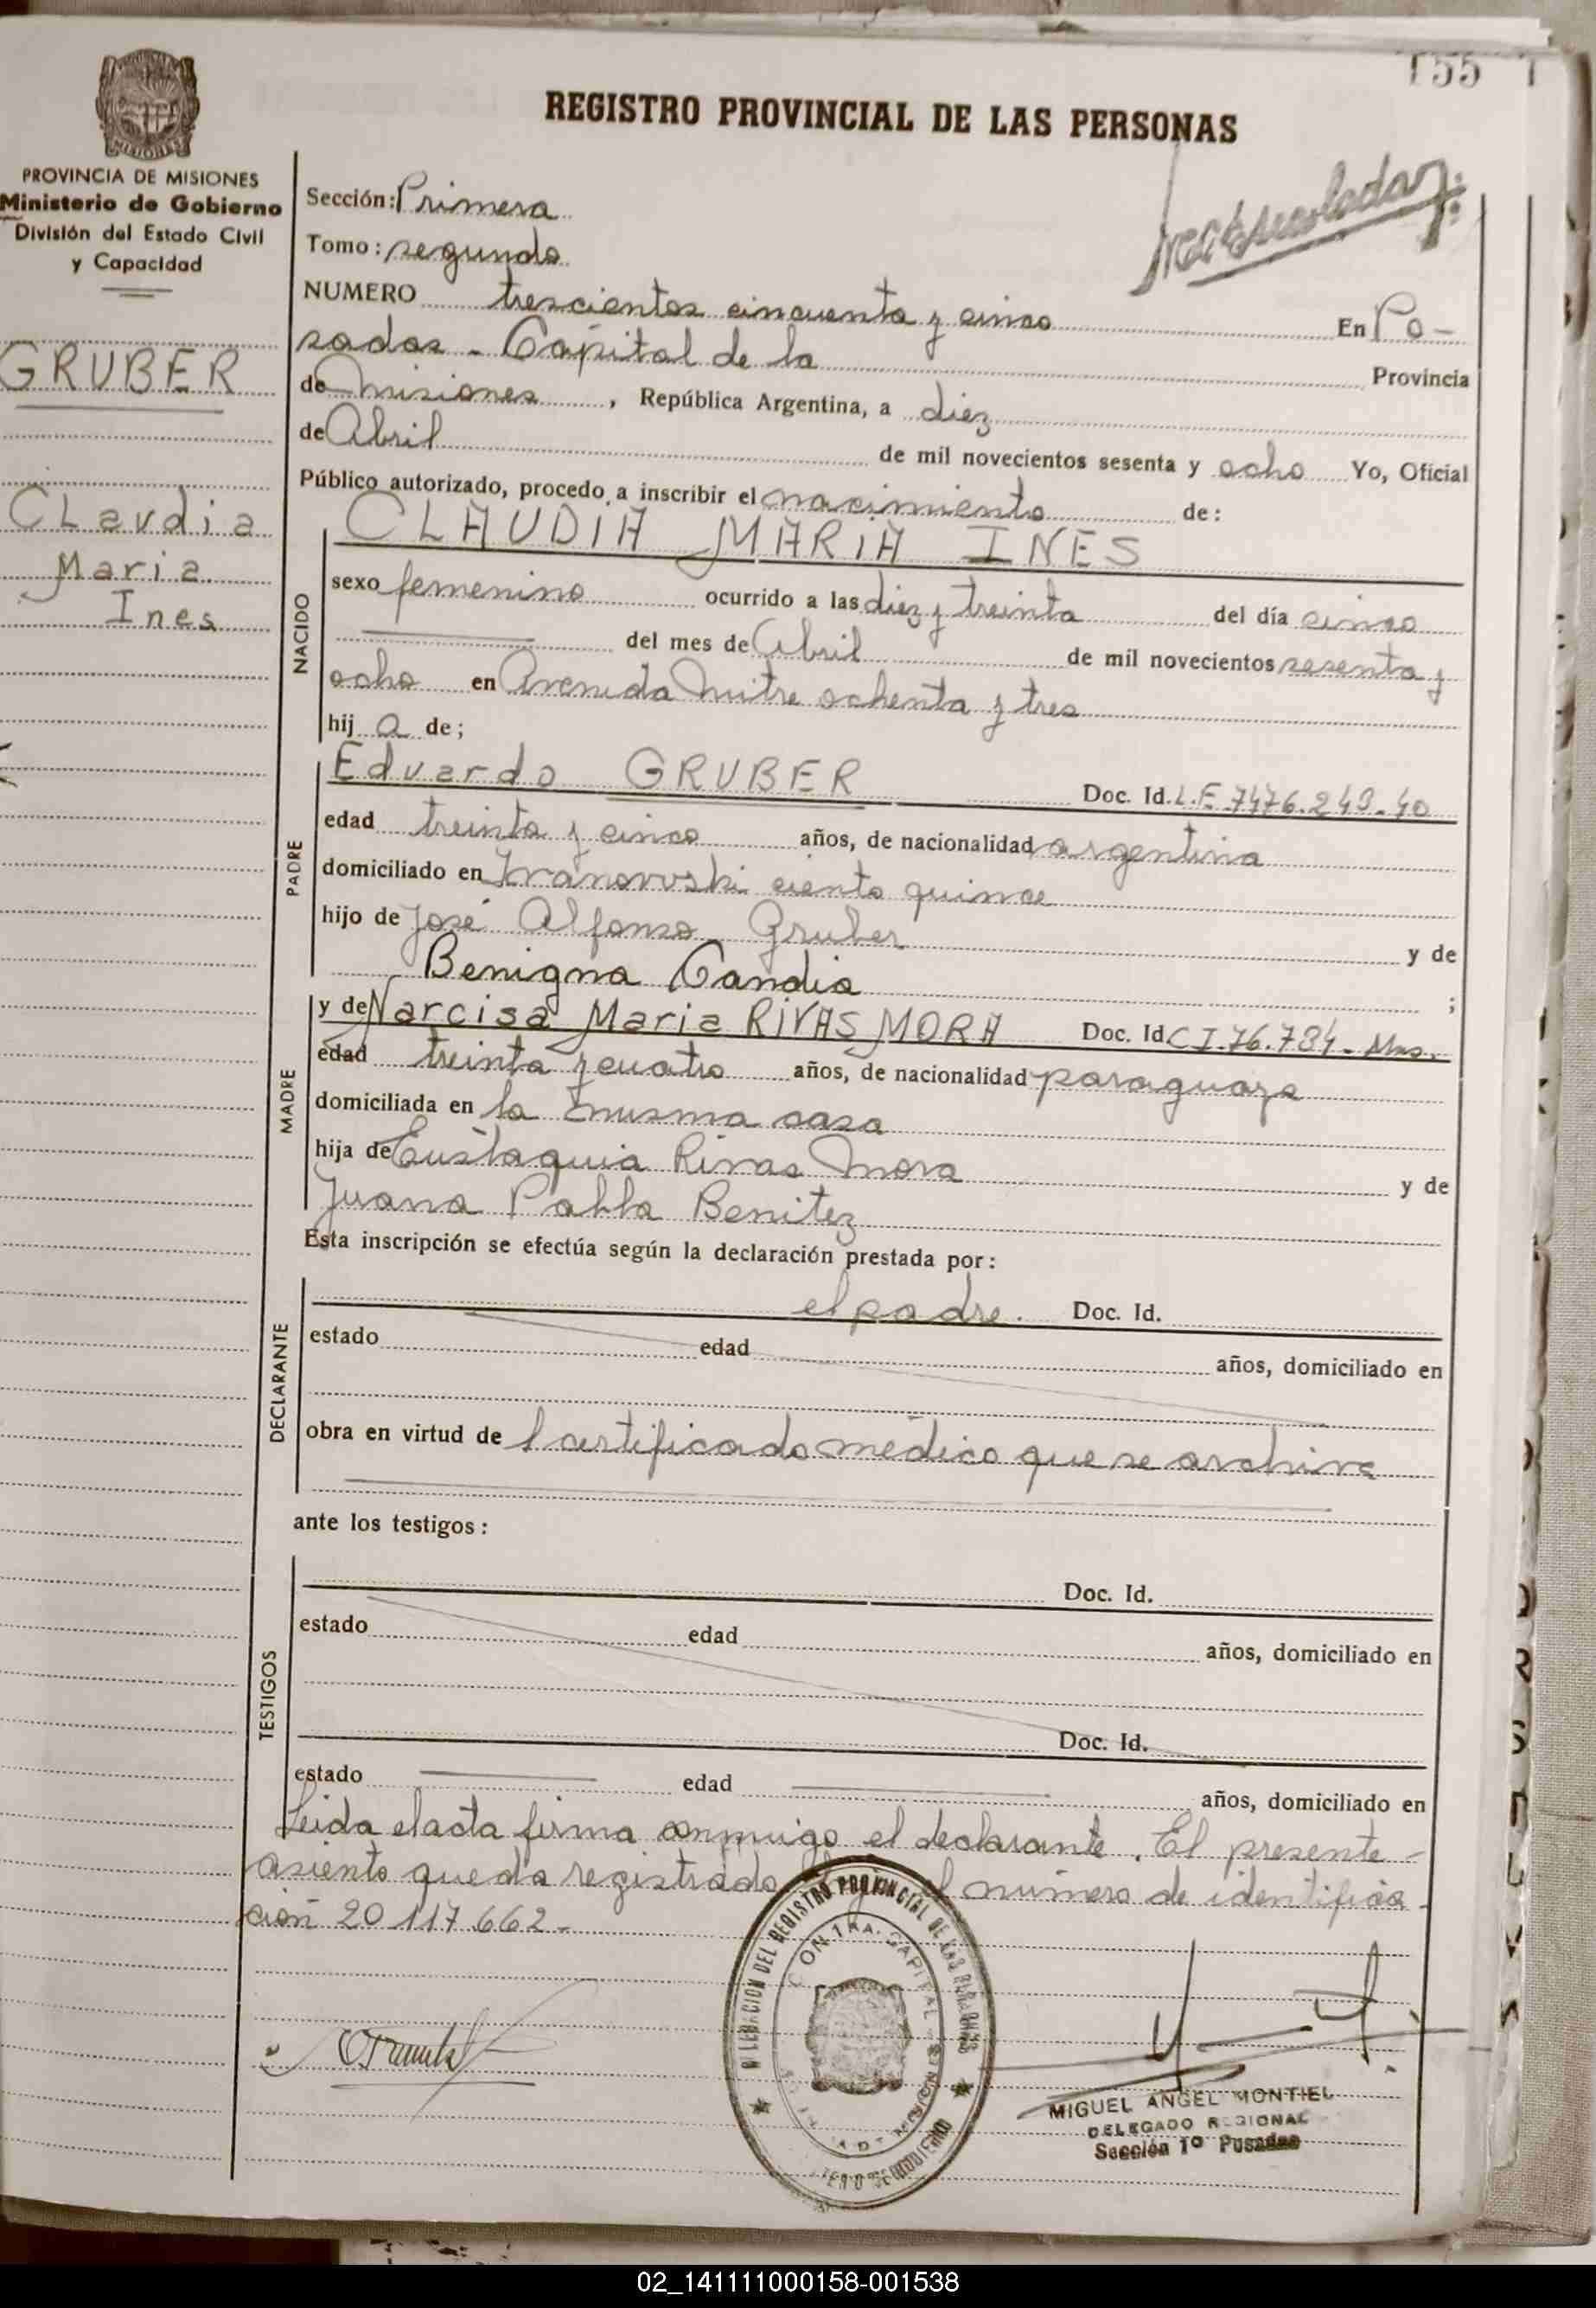 155
REGISTRO PROVINCIAL DE LAS PERSONAS
MISIONES
PROVINCIA DE MISIONES
Ministerio de Gobierno
División del Estado Civil
y Capacidad
GRUBER
Claudia
Maria
Ines
Sección: Primera
Tomo: segundo
NUMERO trescientos cincuenta y cinco En Po-
sadas - Capital de la Provincia
de Misiones, República Argentina, a diez
de Abril de mil novecientos sesenta y ocho Yo, Oficial
Público autorizado, procedo a inscribir el nacimiento de:
CLAUDIA MARIA INES
NACIDO
sexo femenino ocurrido a las diez y treinta del día cinco
del mes de Abril de mil novecientos sesenta y
ocho en Avenida Mitre ochenta y tres
hij a de;
PADRE
Eduardo GRUBER Doc. Id. L.E 7476.249.40
edad treinta y cinco años, de nacionalidad argentina
domiciliado en ciento quince
hijo de José Alfonso Gruber y de
Benigna Candia ;
MADRE
y de Narcisa Maria RIVAS MORA Doc. Id C I.76.784. Mns.
edad treinta y cuatro años, de nacionalidad paraguaya
domiciliada en la misma casa
hija de Eustaquia Rivas Mora y de
Juana Pabla Benitez
Esta inscripción se efectúa según la declaración prestada por:
DECLARANTE
el padre. Doc. Id.
estado edad años, domiciliado en
obra en virtud de l certificado médico que se archiva
ante los testigos:
TESTIGOS
Doc. Id.
estado edad años, domiciliado en
Doc. Id.
estado edad años, domiciliado en
Leida el acta firma conmigo el declarante. El presente
asiento queda registrado el número de identifica-
ción 20.117.662-
DELEGACION DEL REGISTRO PROVINCIAL DE LAS PERSONAS
MIGUEL ANGEL MONTIEL
DELEGADO REGIONAL
Sección 1º Posadas
02_141111000158-001538